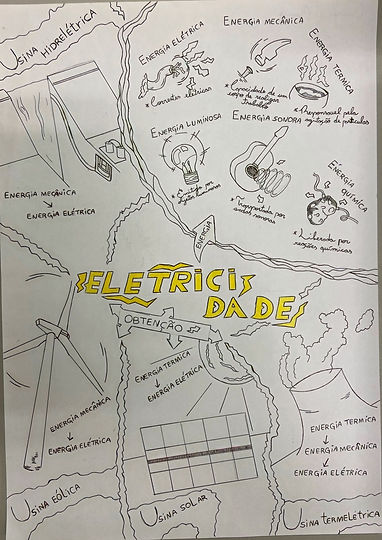 Usina Hidrelétrica
Energia Mecânica
↓
Energia Elétrica
Energia Elétrica
* Correntes elétricas
Energia Mecânica
* Capacidade de um
corpo de realizar
trabalho
Energia Térmica
* Responsável pela
agitação de partículas
Energia Luminosa
por
Energia Sonora
* Transportada por
ondas sonoras
Energia Química
* Liberada por
reações químicas
Energia
ELETRICI
DADE
Obtenção
Energia Mecânica
↓
Energia Elétrica
Usina Eólica
Energia Termica
↓
Energia Elétrica
Usina Solar
Energia Termica
↓
Energia Mecânica
↓
Energia Elétrica
Usina Termeletrica